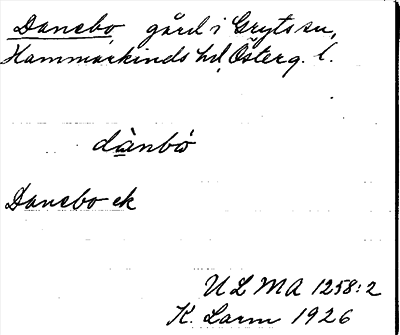 Danebo gård i Gryts sn,
Hammarkinds hd, Österg. l.
dànbo
Danebo ek
ULMA 1258:2
K. Larm 1926